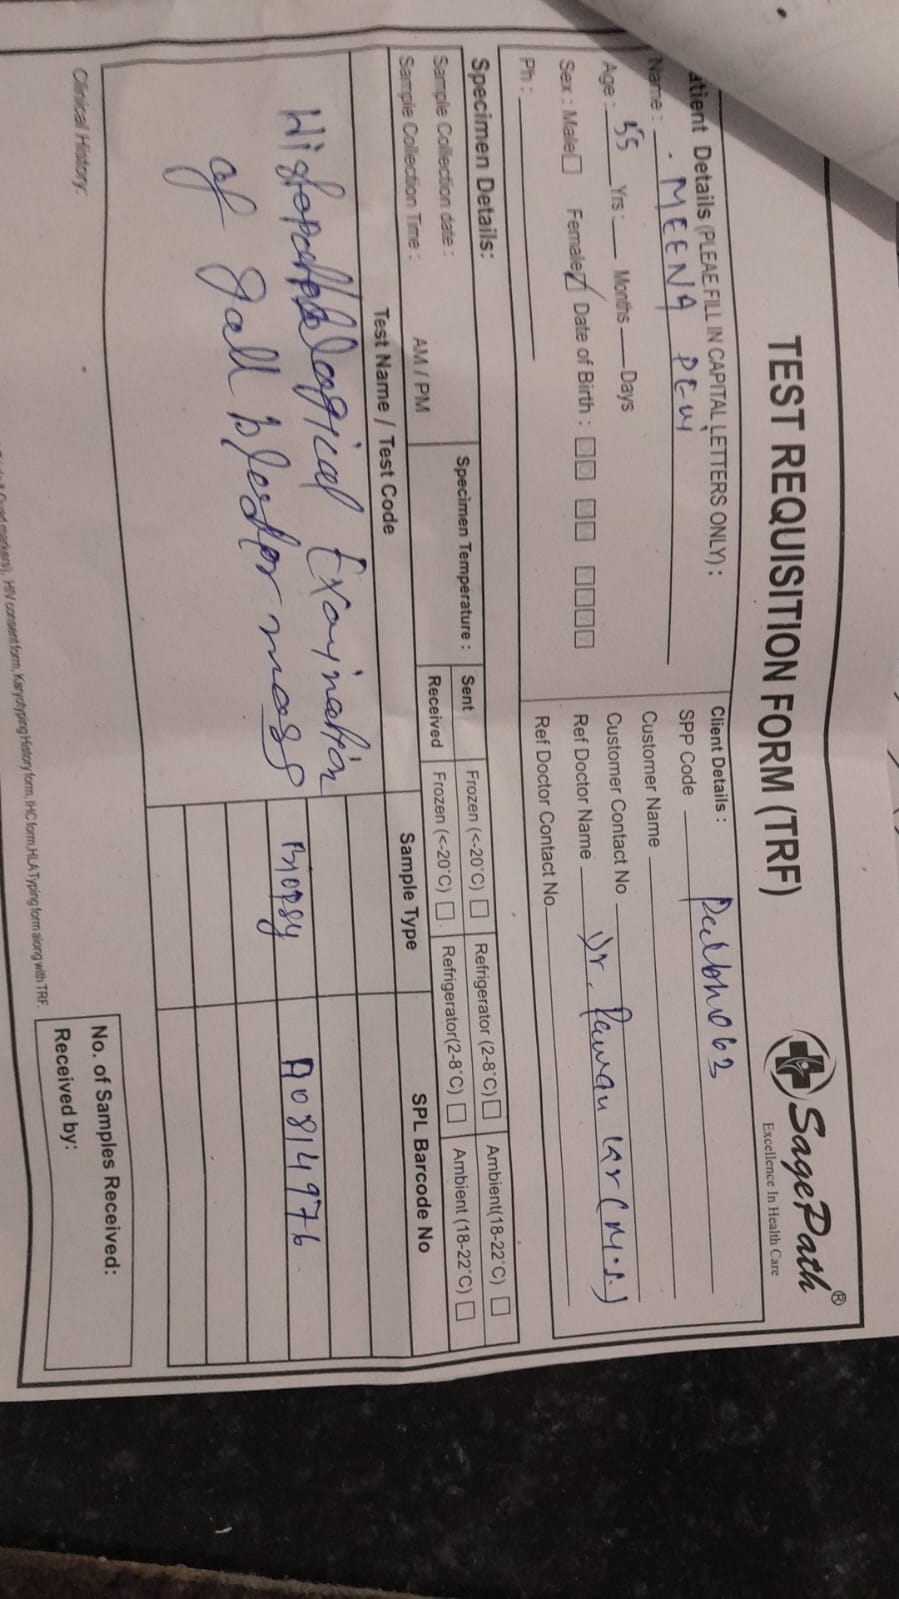 TEST REQUISITION FORM (TRF)
SagePath®
Excellence In Health Care
atient Details (PLEAE FILL IN CAPITAL LETTERS ONLY) :
Name : MEENA DEVI
Age : 55 Yrs : Months Days
Sex : Male Female Date of Birth :
Ph :
Client Details :
SPP Code
Customer Name
Customer Contact No
Ref Doctor Name Dr. Pawan Kr (M.S.)
Ref Doctor Contact No.
Specimen Details:
Sample Collection date :
Sample Collection Time : AM / PM
Specimen Temperature :
Sent Frozen (<-20°C) Refrigerator (2-8°C) Ambient(18-22°C)
Received Frozen (<-20°C) Refrigerator(2-8°C) Ambient (18-22°C)
Test Name / Test Code Sample Type SPL Barcode No
Histopathological Examination
of gall bladder mass Biopsy A0814976
Clinical History:
HIV consent form, Karyotyping History form, IHC form, HLA Typing form along with TRF.
No. of Samples Received:
Received by: